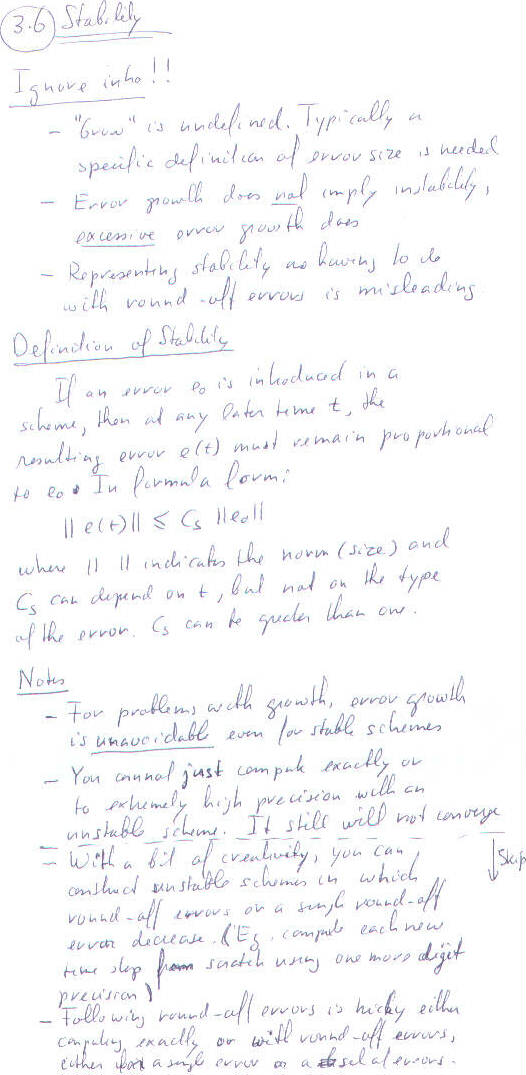 3.6 Stability
Ignore intro!!
- "Grow" is undefined. Typically a
specific definition of error size is needed
- Error growth does not imply instability,
excessive error growth does
- Representing stability as having to do
with round-off errors is misleading
Definition of Stability
If an error e0 is introduced in a
scheme, then at any later time t, the
resulting error e(t) must remain proportional
to e0. In formula form:
|| e(t) || ≤ Cs ||e0||
where || || indicates the norm (size) and
Cs can depend on t, but not on the type
of the error. Cs can be greater than one.
Notes
- For problems with growth, error growth
is unavoidable even for stable schemes
- You cannot just compute exactly or
to extremely high precision with an
unstable scheme. It still will not converge
- With a bit of creativity, you can
Skip
construct unstable schemes in which
round-off errors or a single round-off
error decrease. (Eg. compute each new
time step from scratch using one more digit
precision)
- Following round-off errors is tricky either
computing exactly or with round-off errors,
either for a single error or a set of errors.